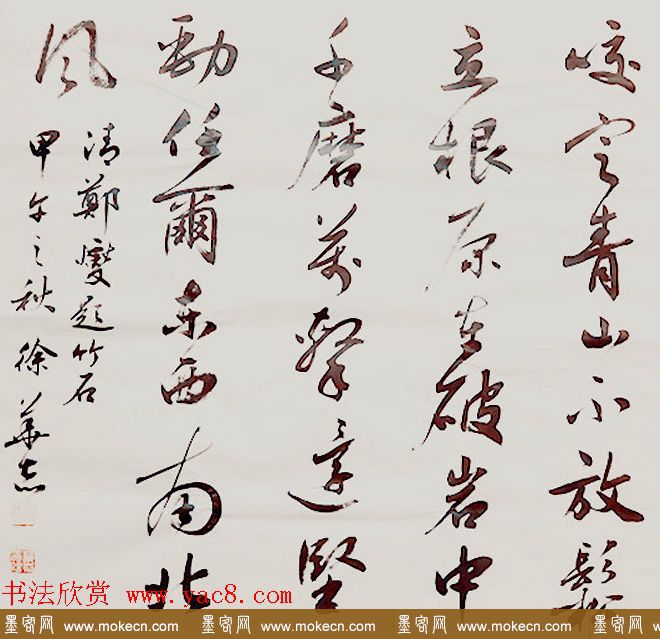 咬定青山不放鬆
立根原在破岩中
千磨萬擊還堅
勁任爾東西南北
風
清鄭燮題竹石
甲午之秋徐華志
书法欣赏 www.yac8.com
墨客网 www.mokecn.com 墨客网 www.mokecn.com 墨客网 www.mokecn.com